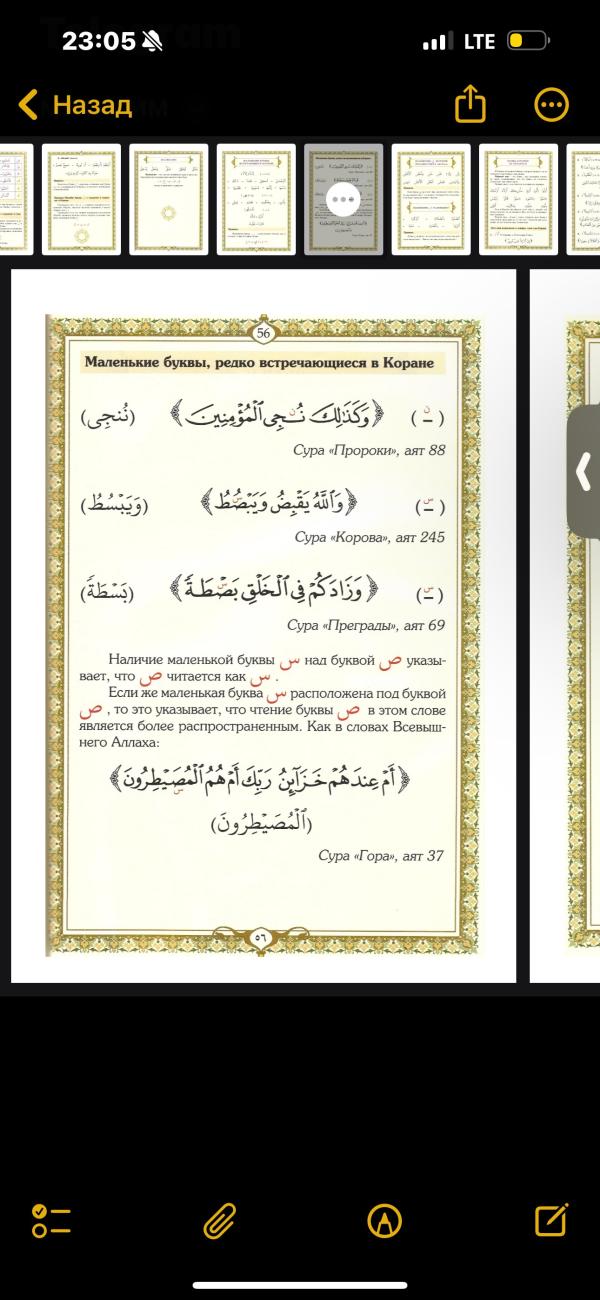 23:05
LTE
Назад
56
Маленькие буквы, редко встречающиеся в Коране
( نـ ) ﴿وَكَذَٰلِكَ نُـۨجِى ٱلْمُؤْمِنِينَ﴾ (نُنجِى)
Сура «Пророки», аят 88
( سـ ) ﴿وَٱللَّهُ يَقْبِضُ وَيَبْصُۜطُ﴾ (وَيَبْسُطُ)
Сура «Корова», аят 245
( سـ ) ﴿وَزَادَكُمْ فِى ٱلْخَلْقِ بَصْۜطَةً﴾ (بَسْطَةً)
Сура «Преграды», аят 69
Наличие маленькой буквы س над буквой ص указы-
вает, что ص читается как س .
Если же маленькая буква س расположена под буквой
ص , то это указывает, что чтение буквы ص в этом слове
является более распространенным. Как в словах Всевыш-
него Аллаха:
﴿أَمْ عِندَهُمْ خَزَآئِنُ رَبِّكَ أَمْ هُمُ ٱلْمُصَۣيْطِرُونَ﴾
(ٱلْمُصَيْطِرُونَ)
Сура «Гора», аят 37
٥٦